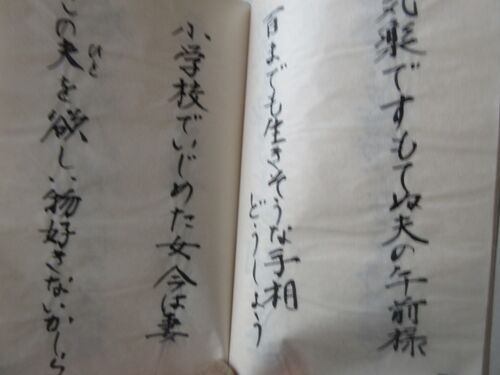 気楽ですもてぬ夫の午前様
百までも生きそうな手相
どうしよう
小学校でいじめた女今は妻
この夫を欲しい物好きないかしら
ひと